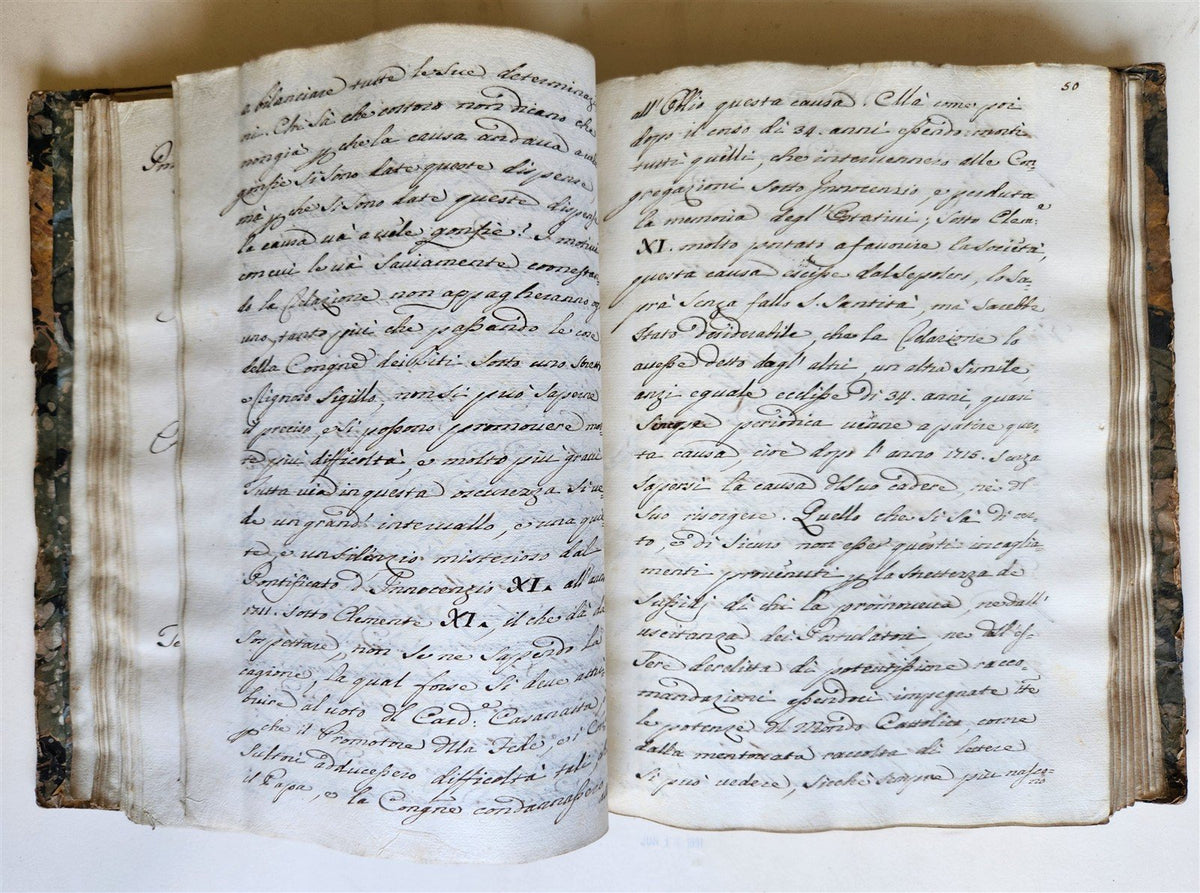 a bilanciare tutte le sue determinazio
ni. Chi sà che costoro non dicano che
non già p che la causa andava a vele
gonfie si sono date queste dispense
mà p che si sono date queste dispense
la causa và a vele gonfie? I motivi
con cui le và saviamente contestan
do la Relazione non appagheranno og
uno, tanto più che passando le cose
della Congne dei Riti sotto uno strett
o sigillo, non si può saperne
il preciso, e si possono promovere mol
te più difficoltà, e molto più gravi
Tutta via in questa oscurezza si ve
de un grand' intervallo, e una quie
te, e un silenzio misterioso dal
Pontificato d'Innocenzio XI. all'anno
1711. sotto Clemente XI., il che dà da
sospettare, non se ne sapendo la
cagione, la qual forse si deve attri
buire al voto dl Card.e Casanatta,
p che il Promotore dlla Fede, e i Con
sultori adducessero difficoltà tali, p
il Papa, e la Congne condannassero
Inn
Te
50
all' Oblio questa causa. Mà come poi
dopo il corso di 34. anni essendo morti
tutti quelli, che intervennero alle Con
gregazioni sotto Innocenzio, e perduta
la memoria degl' Ostatini, sotto Cleme
XI. molto portato a favorire la Società,
questa causa uscisse dal sepolcro, lo sa
prà senza fallo S. Santità, mà sarebbe
stato desiderabile, che la Relazione lo
avesse detto dagl' altri, un altra simile,
anzi eguale ecclisse di 34. anni, quasi
sincope periodica venne a patire ques
ta causa, cioè dopo l' anno 1716. senza
sapersi la causa dl suo cadere, nè dl
suo risorgere. Quello che si sà di cer
to, è di sicuro non esser questi incaglia
menti provenuti p la strettezza de
sussidj di chi la promoveva, ne dall'
uscitanza dei Postulatori, ne dll' es
sere derelitta di potentissime racco
mandazioni essendoci impegnate tte
le potenze dl Mondo Cattolico, come
dalla mentovata raccolta di lettere
si può vedere, sicche sempre più nasco
no